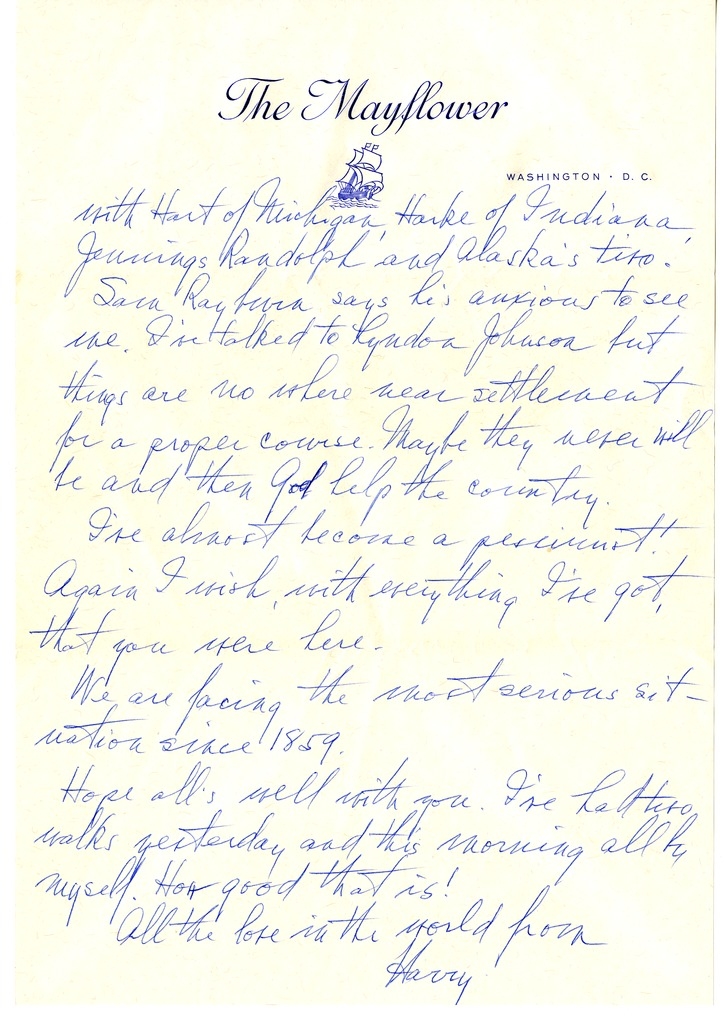 The Mayflower
WASHINGTON · D. C.
with Hart of Michigan, Harke of Indiana,
Jennings Randolph and Alaska's two.
Sam Rayburn says he's anxious to see
me. I've talked to Lyndon Johnson but
things are no where near settlement
for a proper course. Maybe they never will
be and then God help the country.
I've almost become a pessimist!
Again I wish, with everything I've got,
that you were here.
We are facing the most serious sit-
uation since 1859.
Hope all's well with you. I've had two
walks yesterday and this morning all by
myself. How good that is!
All the love in the world from
Harry